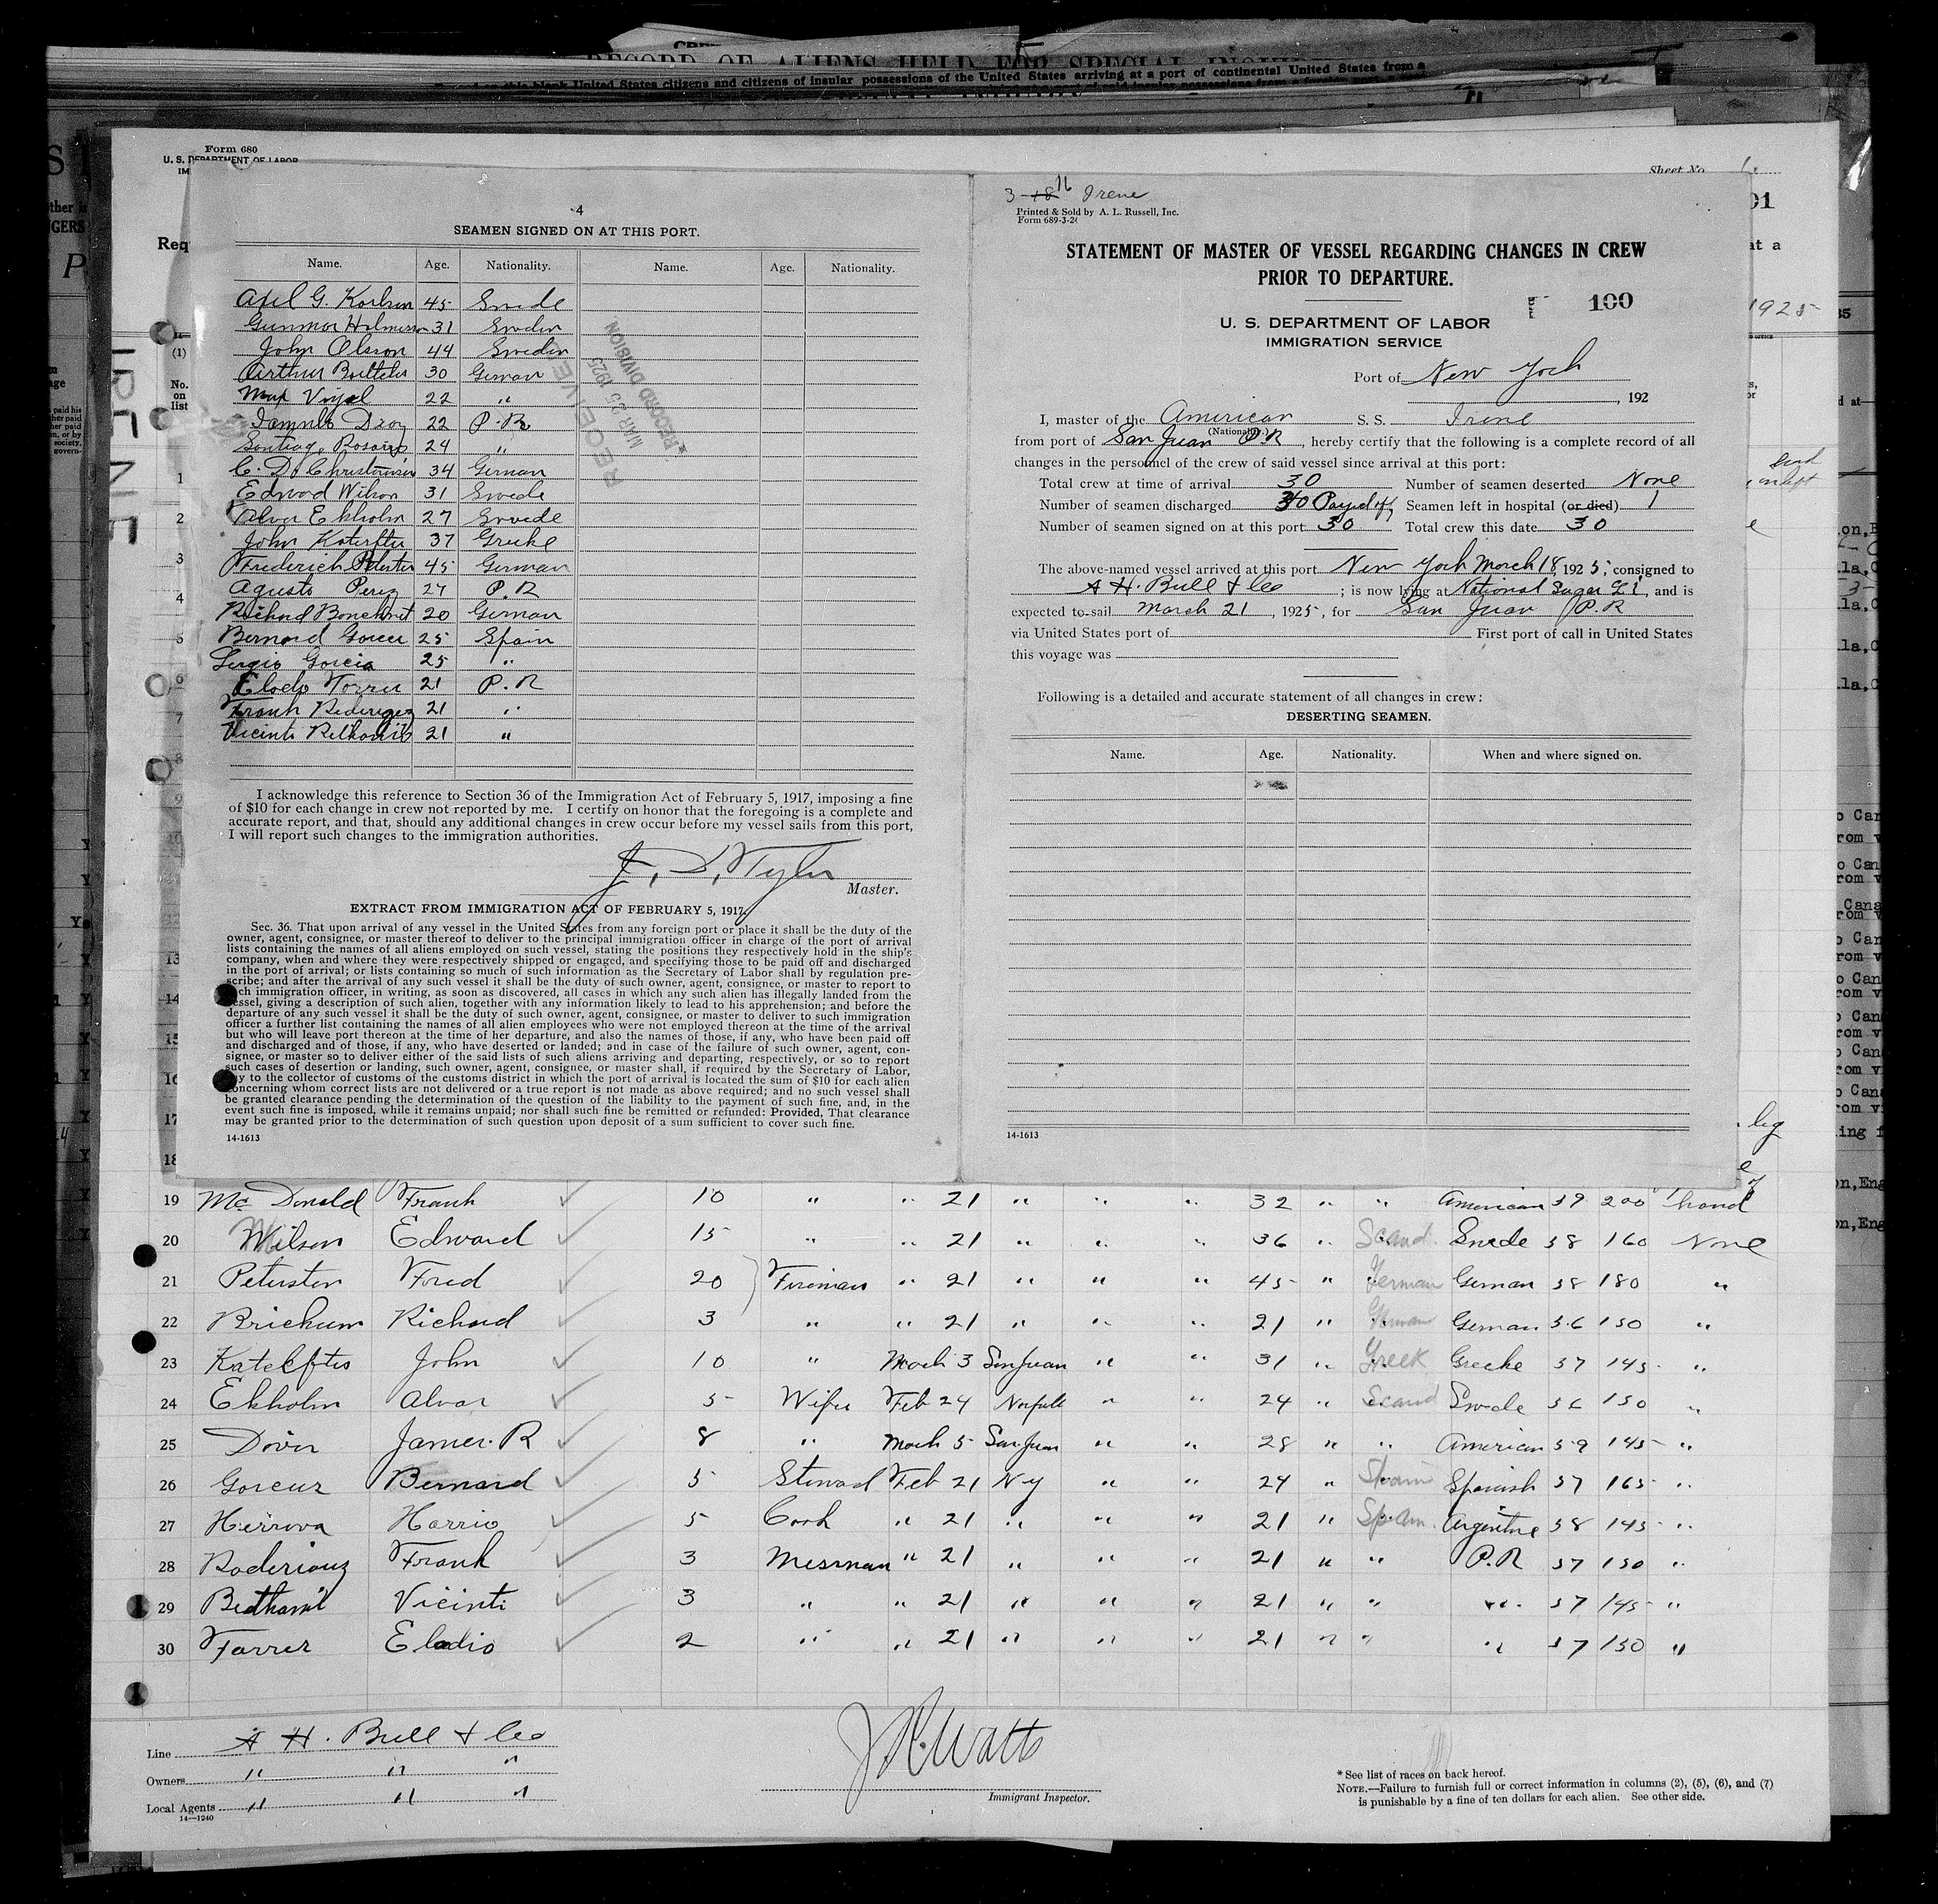 RECORD OF ALIENS HELD FOR SPECIAL INQUIRY
United States citizens and citizens of insular possessions of the United States arriving at a port of continental United States from a
Form 680
U. S. DEPARTMENT OF LABOR
Sheet No.
4
SEAMEN SIGNED ON AT THIS PORT.
Name. Age. Nationality. Name. Age. Nationality.
Axel G. Karlsen 45 Swede
31 Sweden
John Olsson 44 Sweden
Arthur 30 German
Max 22 "
22 P.R.
Santiago Rosario 24 "
34 German
Edward Wilson 31 Swede
Alvar Ekholm 27 Swede
John 37 Greeke
Frederich 45 German
Agusto Perez 27 P.R
Richard 20 German
Bernard 25 Spain
Sergio Garcia 25 "
Elado Torres 21 P.R
Frank 21 "
Vicinto 21 "
RECEIVED
MAR 25 1925
RECORD DIVISION
I acknowledge this reference to Section 36 of the Immigration Act of February 5, 1917, imposing a fine
of $10 for each change in crew not reported by me. I certify on honor that the foregoing is a complete and
accurate report, and that, should any additional changes in crew occur before my vessel sails from this port,
I will report such changes to the immigration authorities.
J. D. Tyler
Master.
EXTRACT FROM IMMIGRATION ACT OF FEBRUARY 5, 1917.
Sec. 36. That upon arrival of any vessel in the United States from any foreign port or place it shall be the duty of the
owner, agent, consignee, or master thereof to deliver to the principal immigration officer in charge of the port of arrival
lists containing the names of all aliens employed on such vessel, stating the positions they respectively hold in the ship's
company, when and where they were respectively shipped or engaged, and specifying those to be paid off and discharged
in the port of arrival; or lists containing so much of such information as the Secretary of Labor shall by regulation pre-
scribe; and after the arrival of any such vessel it shall be the duty of such owner, agent, consignee, or master to report to
such immigration officer, in writing, as soon as discovered, all cases in which any such alien has illegally landed from the
vessel, giving a description of such alien, together with any information likely to lead to his apprehension; and before the
departure of any such vessel it shall be the duty of such owner, agent, consignee, or master to deliver to such immigration
officer a further list containing the names of all alien employees who were not employed thereon at the time of the arrival
but who will leave port thereon at the time of her departure, and also the names of those, if any, who have been paid off
and discharged and of those, if any, who have deserted or landed; and in case of the failure of such owner, agent, con-
signee, or master so to deliver either of the said lists of such aliens arriving and departing, respectively, or so to report
such cases of desertion or landing, such owner, agent, consignee, or master shall, if required by the Secretary of Labor,
pay to the collector of customs of the customs district in which the port of arrival is located the sum of $10 for each alien
concerning whom correct lists are not delivered or a true report is not made as above required; and no such vessel shall
be granted clearance pending the determination of the question of the liability to the payment of such fine, and, in the
event such fine is imposed, while it remains unpaid; nor shall such fine be remitted or refunded: Provided, That clearance
may be granted prior to the determination of such question upon deposit of a sum sufficient to cover such fine.
14-1613
3-18 16 Irene
Printed & Sold by A. L. Russell, Inc.
Form 689-3-24
STATEMENT OF MASTER OF VESSEL REGARDING CHANGES IN CREW
PRIOR TO DEPARTURE.
100
U. S. DEPARTMENT OF LABOR
IMMIGRATION SERVICE
Port of New York
, 192
I, master of the American S. S. Irene
(Nationality.)
from port of San Juan P.R , hereby certify that the following is a complete record of all
changes in the personnel of the crew of said vessel since arrival at this port:
Total crew at time of arrival 30 Number of seamen deserted None
Number of seamen discharged 30 Payed off Seamen left in hospital (or died) 1
Number of seamen signed on at this port 30 Total crew this date 30
The above-named vessel arrived at this port New York March 18, 1925; consigned to
A H. Bull & Co ; is now lying at National Sugar L I, and is
expected to sail March 21, 1925, for San Juan P.R
via United States port of First port of call in United States
this voyage was
Following is a detailed and accurate statement of all changes in crew:
DESERTING SEAMEN.
Name. Age. Nationality. When and where signed on.
14-1613
IRENE
19 McDonald Frank 10 " " 21 " " " 32 " " American 59 200 hand
20 Wilson Edward 15 " " 21 " " " 36 " Scand. Swede 58 160 None
21 Peterster Fred 20 Fireman " 21 " " " 45 " German German 58 180 "
22 Brickum Richard 3 " " 21 " " " 21 " German German 56 150 "
23 Kateleftis John 10 " March 3 San Juan " " 31 " Greek Greeke 57 145 "
24 Ekholm Alvar 5 Wiper Feb 24 Norfolk " " 24 " Scand Swede 56 150 "
25 James. R 8 " March 5 San Juan " " 28 " " American 59 145 "
26 Bernard 5 Steward Feb 21 N-y " " 24 " Spain Spanish 57 165 "
27 Herrova Harrio 5 Cook " 21 " " " 21 " Spam. Argentine 58 145 "
28 Roderiouz Frank 3 Messman " 21 " " " 21 " " P.R 57 130 "
29 Vicinti 3 " " 21 " " " 21 " " " 57 145 "
30 Torres Eladio 2 " " 21 " " " 21 " " " 57 150 "
Line A H. Bull & Co
Owners " " "
Local Agents " " "
14-1240
J. Watts
Immigrant Inspector.
* See list of races on back hereof.
NOTE.—Failure to furnish full or correct information in columns (2), (5), (6), and (7)
is punishable by a fine of ten dollars for each alien. See other side.